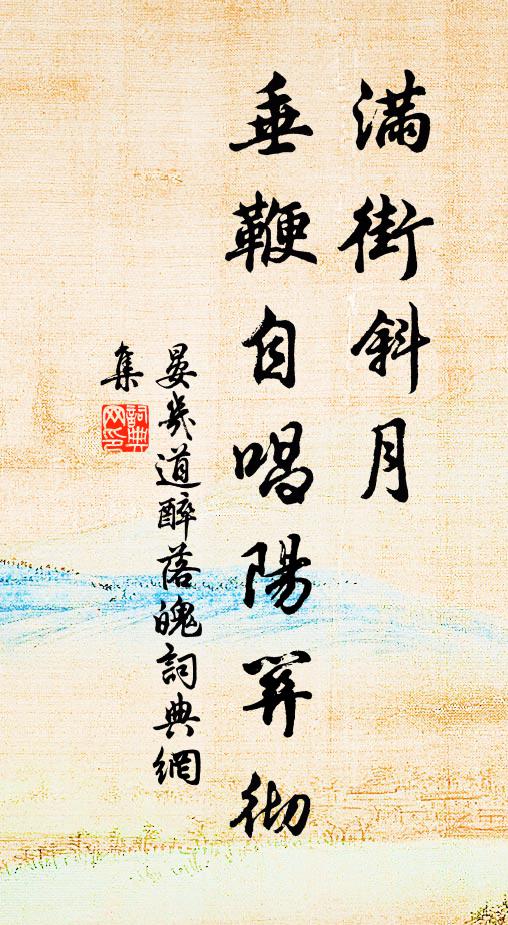 滿街斜月
垂鞭自唱陽關徹
晏幾道醉落魄詞典網
集
詞典
网印